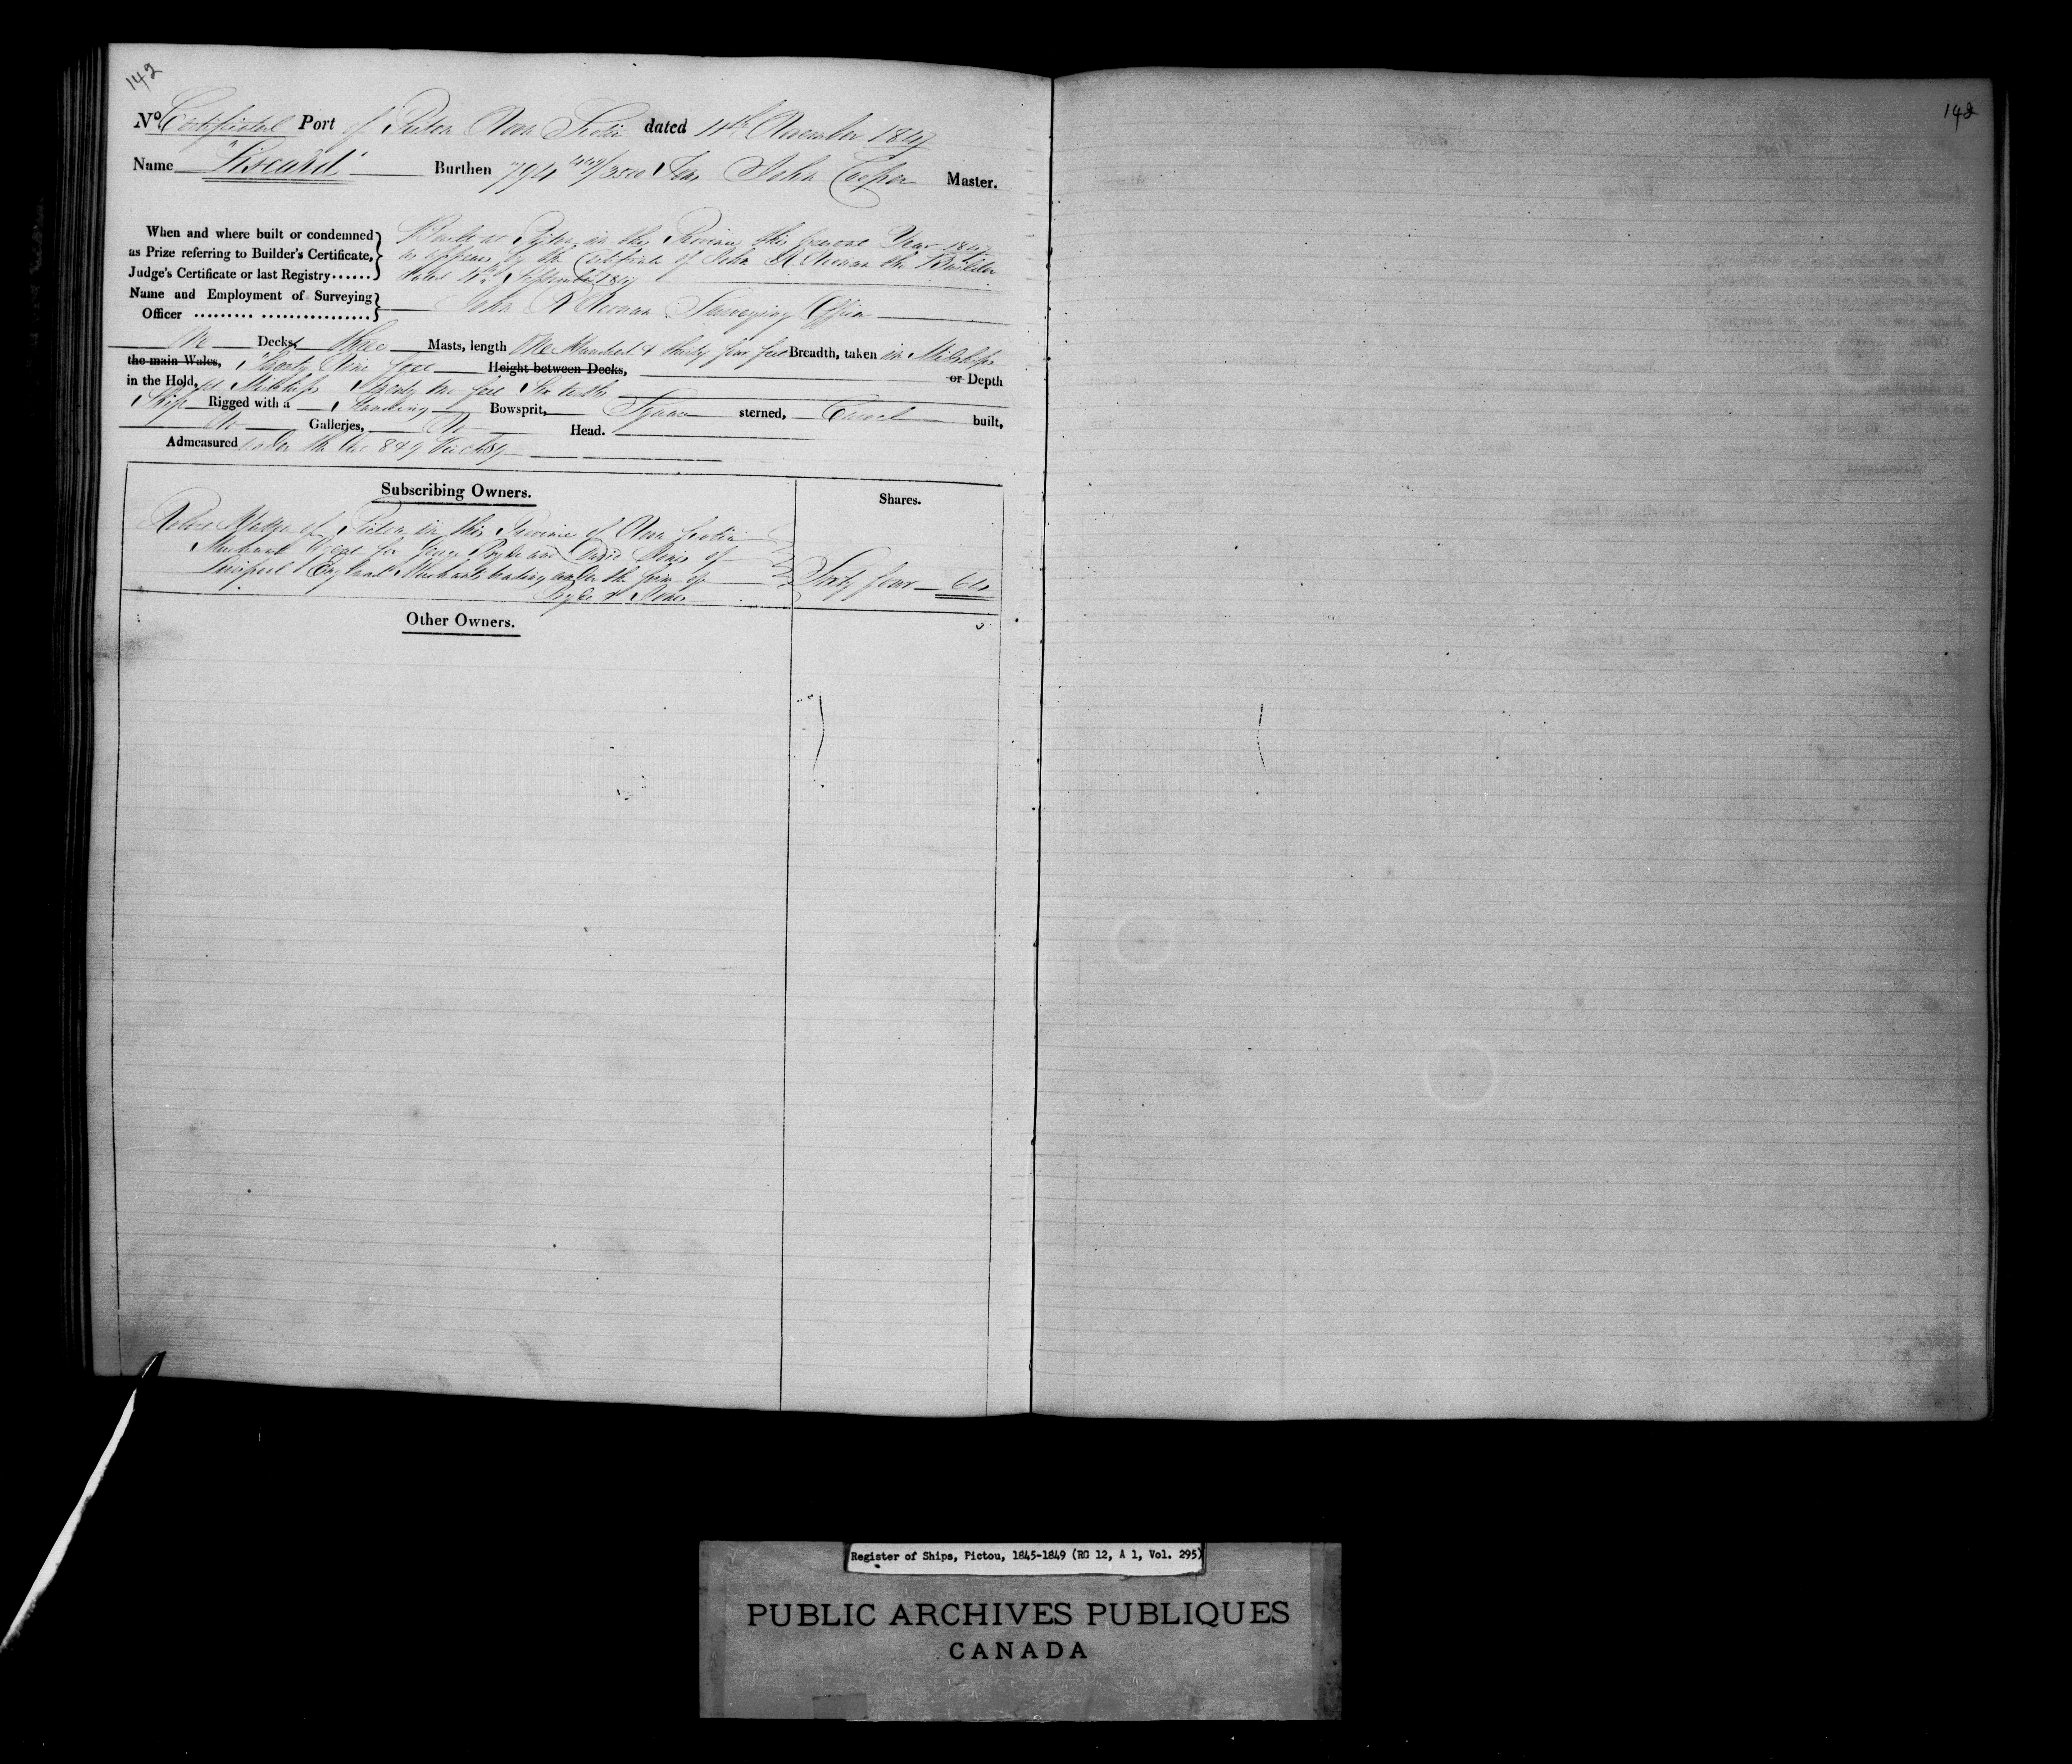 142
No Certificate Port of Pictou Nova Scotia dated 11th November 1847
Name "Liscard" Burthen 794 449/3500 Tons John Cooper Master.
When and where built or condemned as Prize referring to Builder's Certificate, Judge's Certificate or last Registry......
Built at Pictou in this Province this present Year 1847
as appears by the Certificate of John the Builder
dated September 1847
Name and Employment of Surveying Officer
John Surveying Officer
Decks, Three Masts, length One Hundred & thirty four feet Breadth, taken in Midships
the main Wales, Twenty Nine feet Height between Decks, or Depth
in the Hold, at Midships Twenty two feet Six tenths
Ship Rigged with a Standing Bowsprit, Square sterned, Carvel built,
No Galleries, No Head.
Admeasured under the Act 8 & 9 Vic ch 89
Subscribing Owners.
Shares.
of Pictou in this Province of Nova Scotia
Merchant Agent for George Pryde and David Jones of
Liverpool England Merchants trading under the firm of
Pryde & Jones
Sixty four 64
Other Owners.
142
Register of Ships, Pictou, 1845-1849 (RG 12, A 1, Vol. 295)
PUBLIC ARCHIVES PUBLIQUES
CANADA